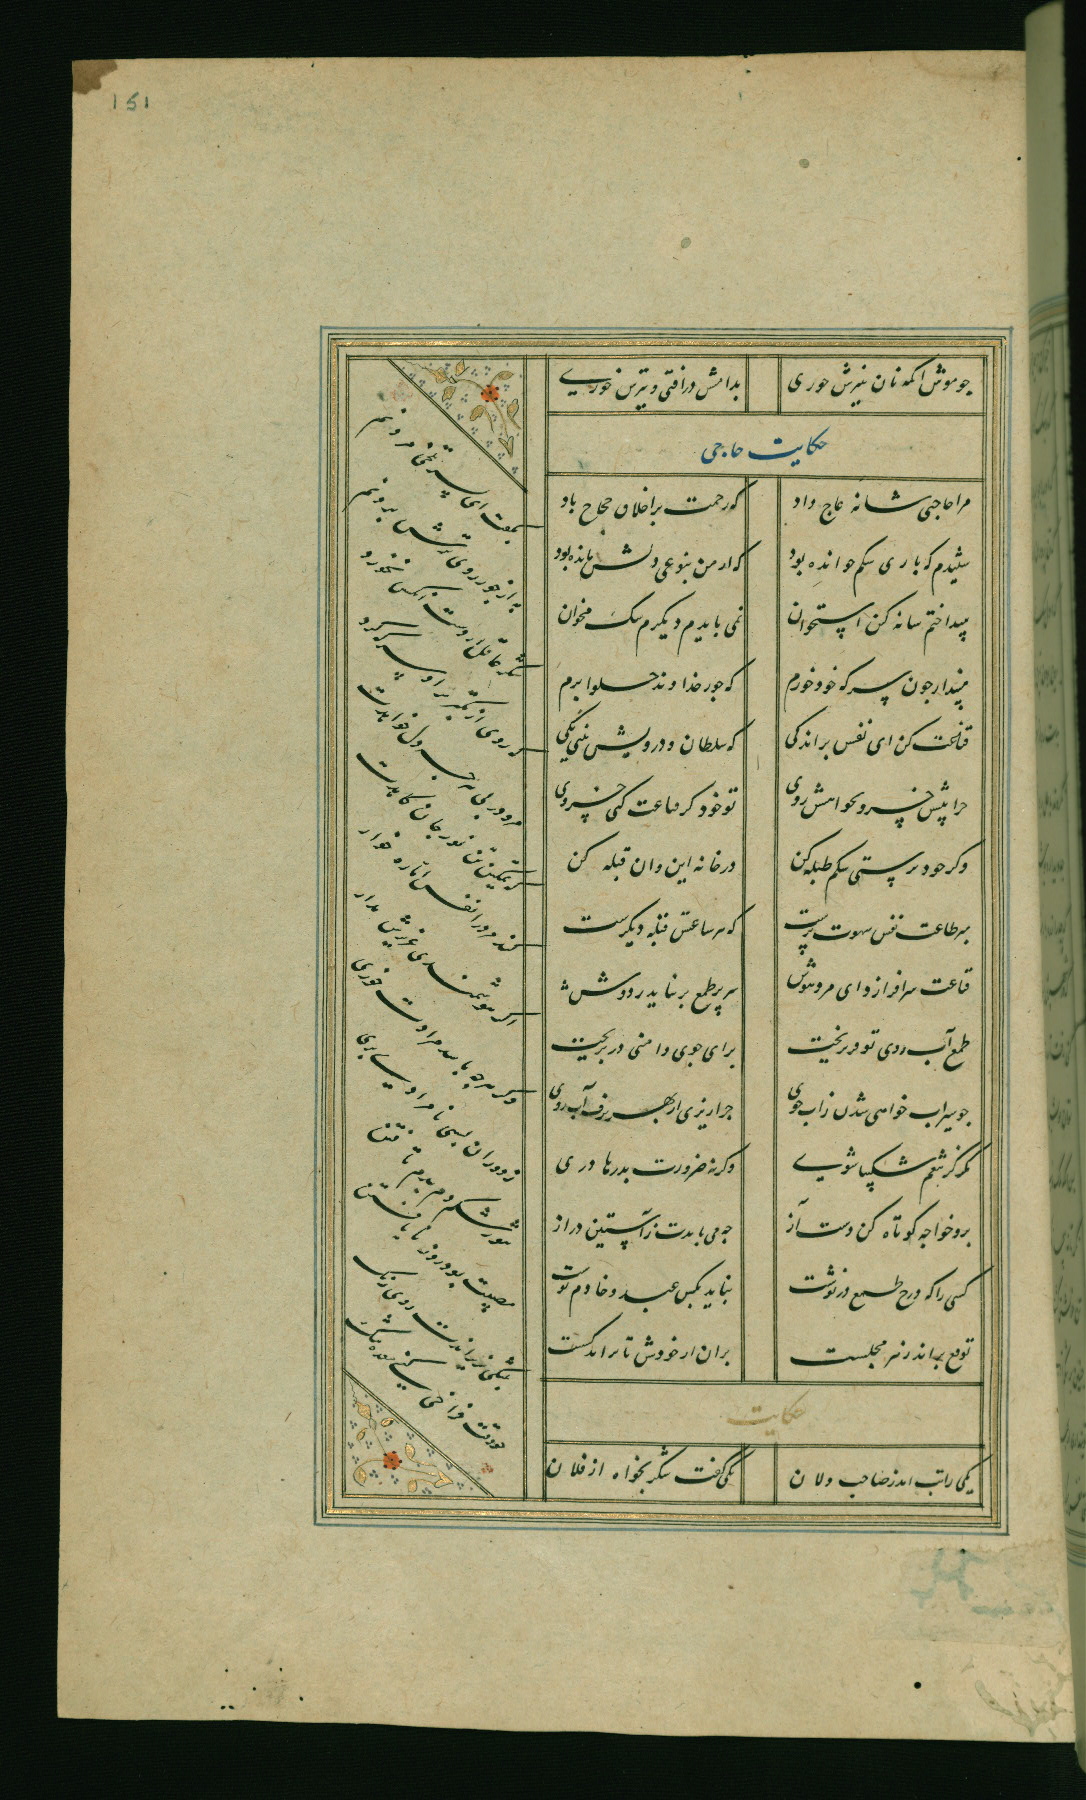 151
چو موش آنکه نان و پنیرش خوری
بدامش درافتی و تیرش خوری
حکایت حاجی
مرا حاجی شانه عاج داد
که رحمت بر اخلاق حجاج باد
شنیدم که باری سگم خوانده بود
که از من بنوعی دلش مانده بود
بینداختم شانه کین استخوان
نمی بایدم دیگرم سگ مخوان
مپندار چون سرکه خود خورم
که جور خداوند حلوا برم
قناعت کن ای نفس بر اندکی
که سلطان و درویش بینی یکی
چرا پیش خسرو بخواهش روی
تو خود گر قناعت کنی خسروی
وگر خود پرستی شکم طبله کن
در خانه این و آن قبله کن
که هر ساعتش قبله دیگرست
قناعت سرافرازد ای مرد هوش
سر پر طمع بر نیاید ز دوش
طمع آب روی تو در بریخت
برای جوی دامنی در بریخت
چو سیراب خواهی شدن زاب جوی
چرا ریزی از بهر برف آب روی
مگر کز تنعم شکیبا شوی
وگرنه ضرورت بدرها دوی
برو خواجه کوتاه کن دست آز
چه می بایدت زآستین دراز
کسی را که درج طمع در نوشت
نباید بکس عبد و خادم نوشت
توقع براند ز هر مجلست
بران از خودش تا نراند کست
حکایت
یکی را تب آمد ز صاحب دلان
یکی گفت شکر بخواه از فلان
بگفت ای پسر تلخی مردنم
به از جور روی ترش بردنم
شکر عاقل از دست آنکس نخورد
که روی از تکبر برو سرکه کرد
مرو در پی هر چه دل خواهدت
که تمکین تن نور جان کاهدت
کند مرد را نفس اماره خوار
اگر هوشمندی عزیزش مدار
وگر هر چه باشد مرادت خوری
ز دوران بسی نامرادی بری
تنور شکم دم بدم تافتن
مصیبت بود روز نایافتن
بتنگی بریزاندت روی رنگ
چو وقت فراخی کنی معده تنگ